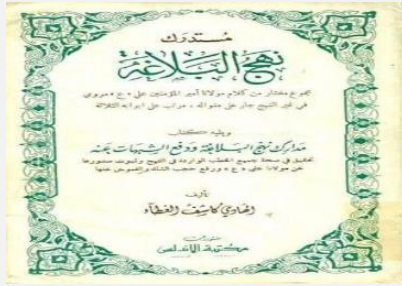 مستدرك
نهج البلاغة
مجموع مختار من كلام مولانا أمير المؤمنين علي «ع» مروي
في غير النهج جار على منواله ، مرتب على ابوابه الثلاثة
ويليه كتاب
مدارك نهج البلاغة ودفع الشبهات عنه
تحقيق في صحة جميع الخطب الواردة في النهج وثبوت صدورها
عن مولانا علي «ع» ورفع حجب الشك والغموض عنها
تأليف
الهادي كاشف الغطاء
منشورات
مكتبة الأندلس